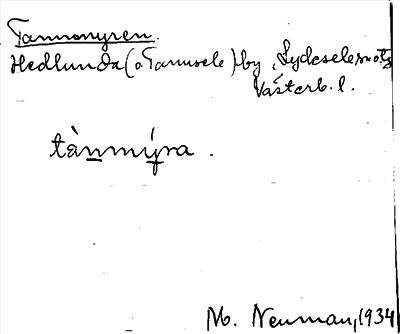 Tannmyren.
Hedlunda (o Tannsele) by, Lycksele sn o tg
Västerb. l.
tànmýra .
M. Neuman, 1934